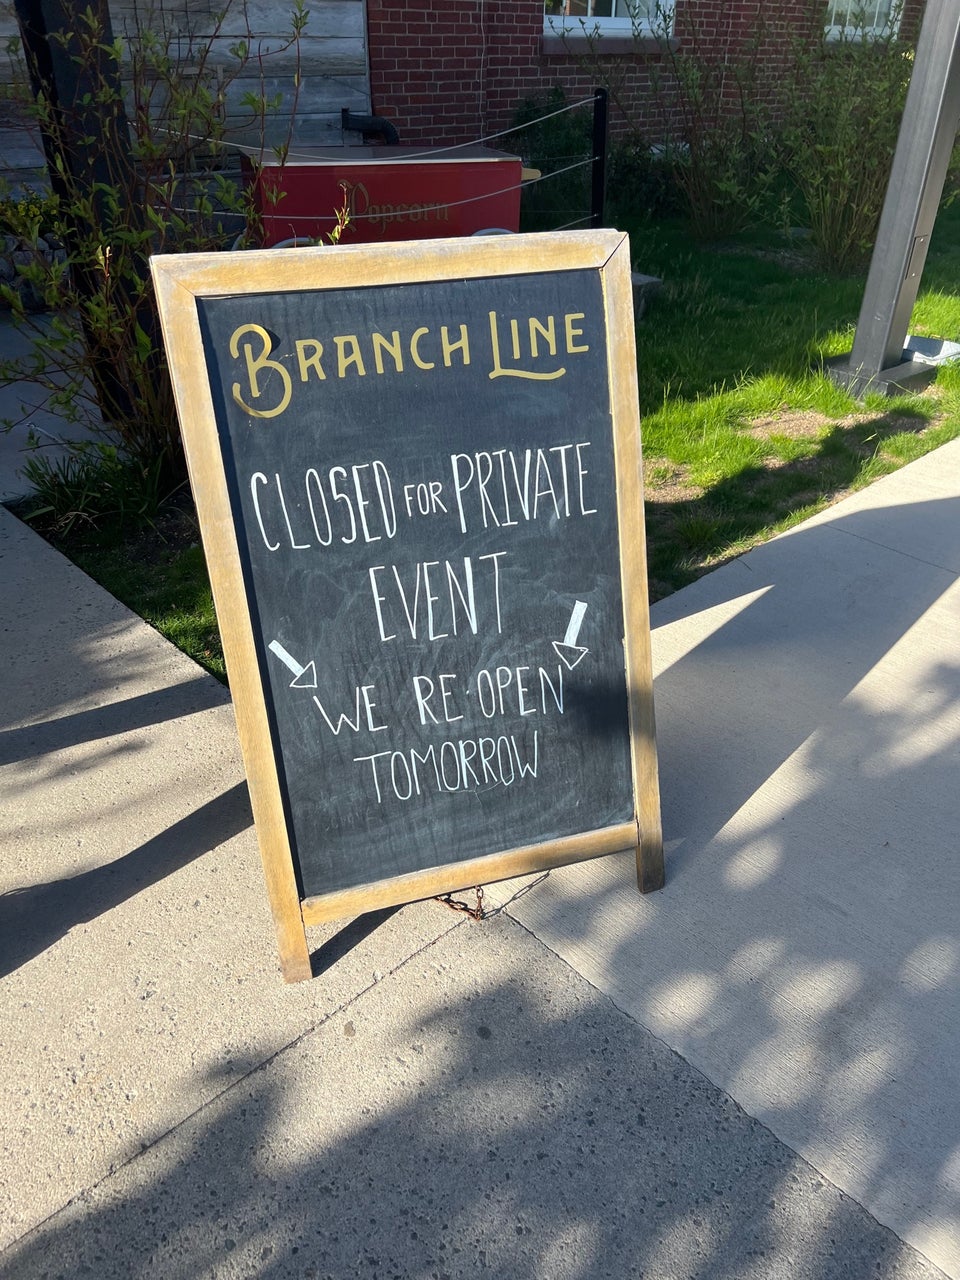 Popcorn
BRANCH LINE
CLOSED FOR PRIVATE
EVENT
WE RE-OPEN
TOMORROW